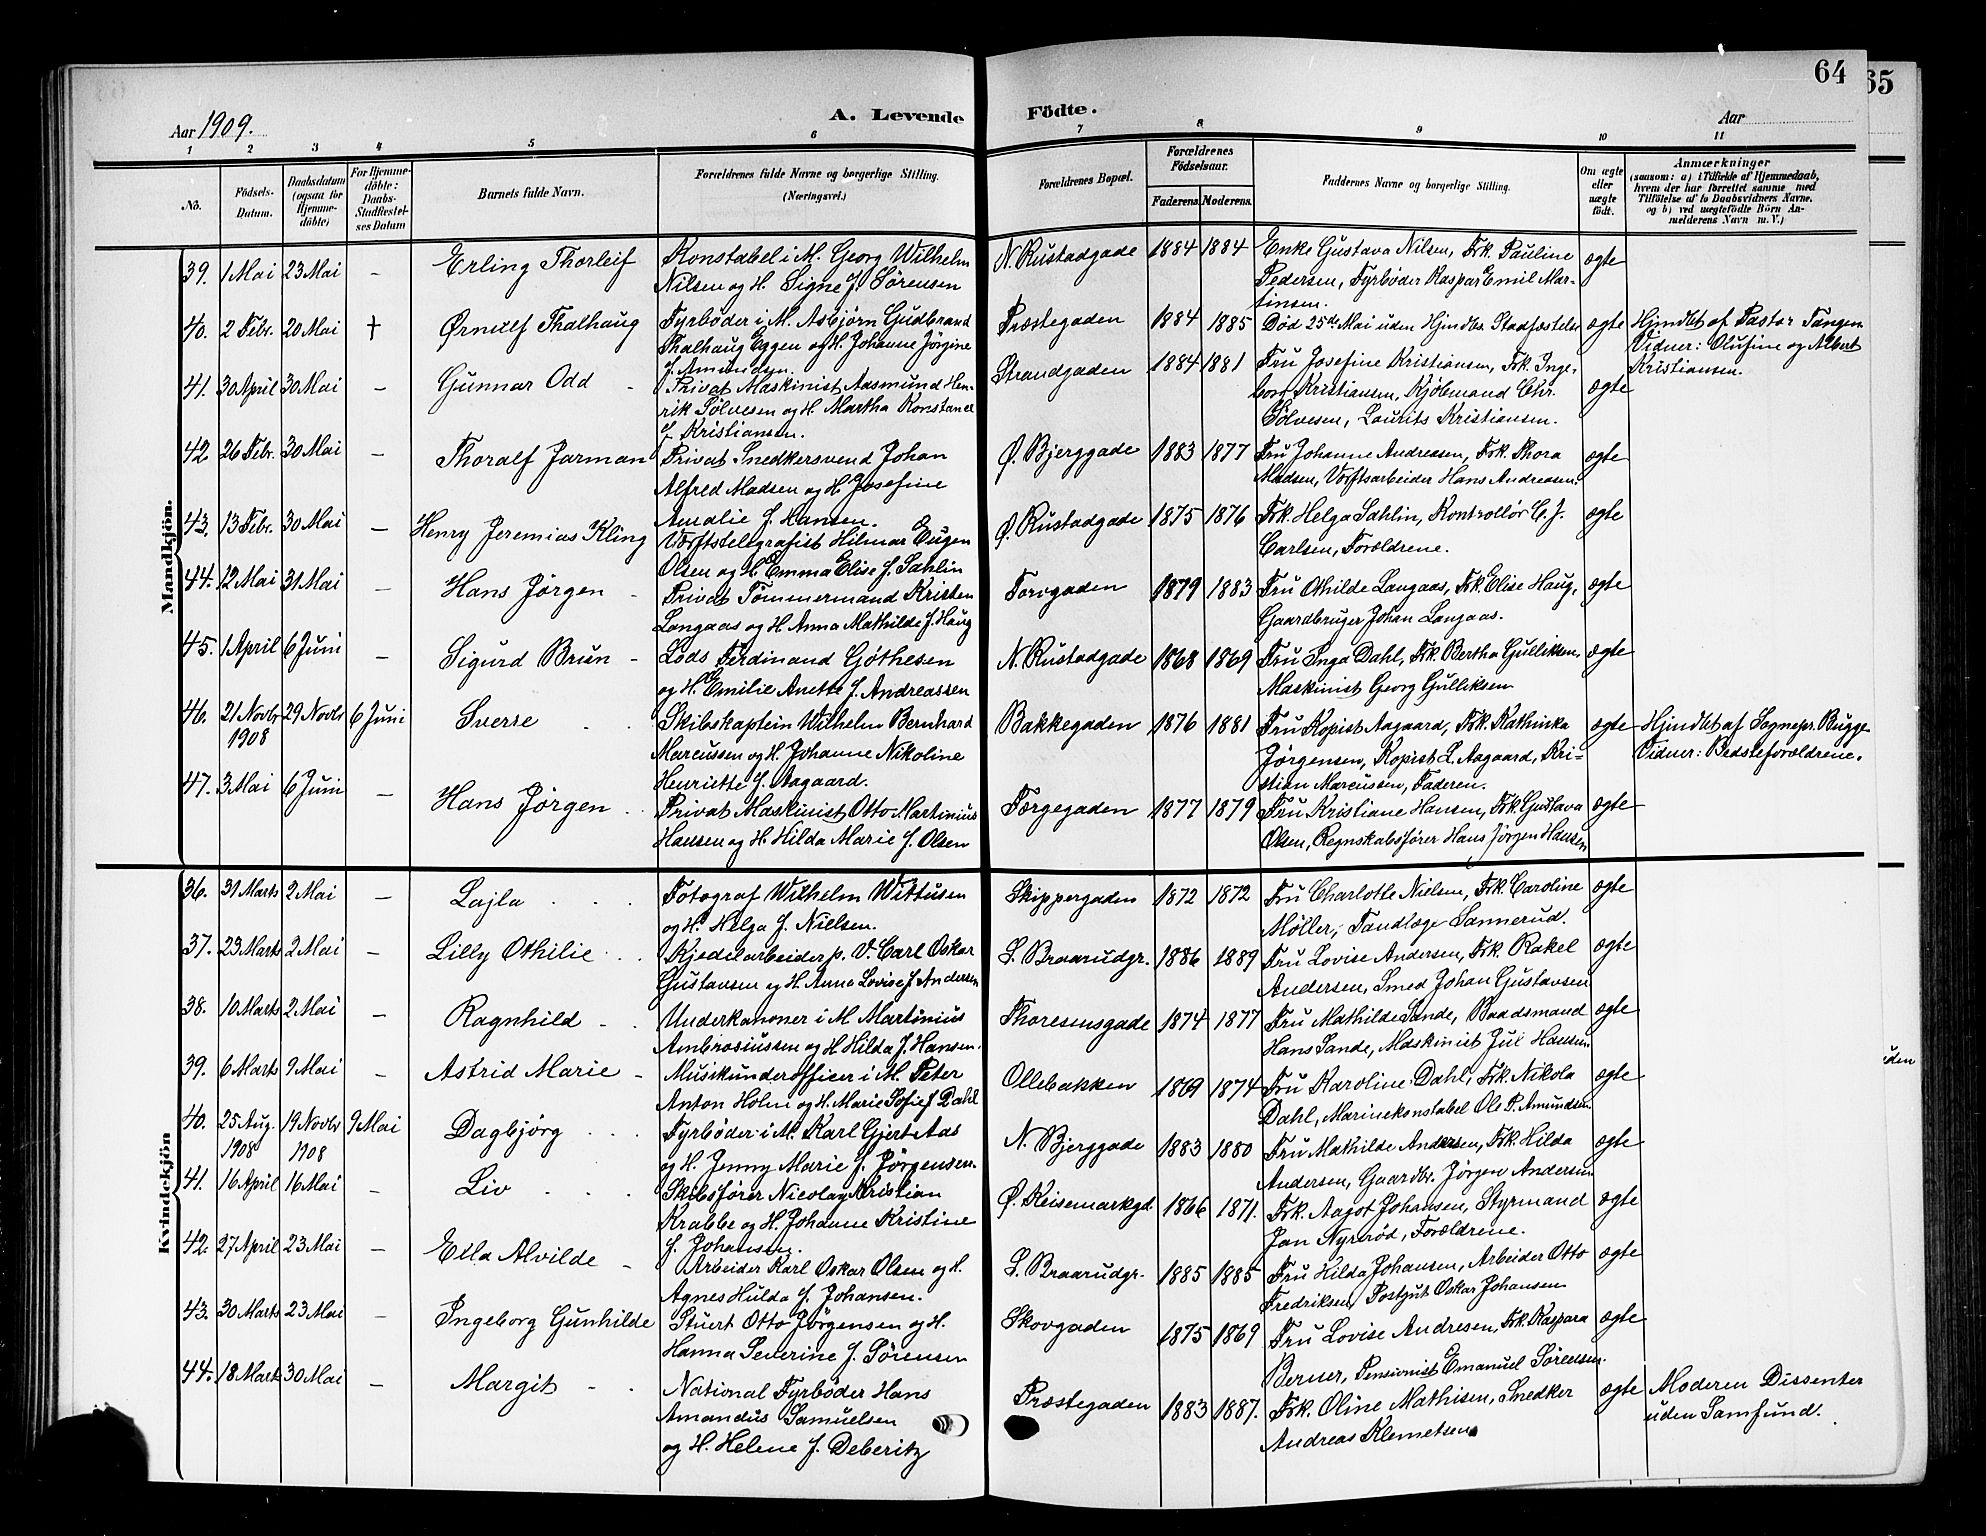 64
65
A. Levende Födte.
Aar 1909.
Aar
1 2 3 4 5 6 7 8 9 10 11
No.
Födsels-Datum.
Daabsdatum (ogsaa for Hjemme-döbte)
For Hjemme-döbte: Daabs-Stadfæstel-ses Datum
Barnets fulde Navn.
Forældrenes fulde Navne og borgerlige Stilling. (Næringsvei.)
Forældrenes Bopæl.
Forældrenes Födselsaar.
Faderens. Moderens.
Faddernes Navne og borgerlige Stilling.
Om ægte eller uægte født.
Anmærkninger
(saasom: a) i Tilfælde af Hjemmedaab, hvem der har forrettet samme med Tilföielse af to Daabsvidners Navne. og b) ved uægtefödte Börn An-melderens Navn m. V.)
Mandkjön.
39. 1 Mai 23 Mai – Erling Thorleif Konstabel i M. Georg Wilhelm N. Rustadgade 1884 1884 Enke Gustava Nilsen, Frk. Pauline ægte
Nilsen og H. Signe f. Sørensen Pedersen, Fyrbøder Kaspar Emil Mar-
tinsen.
40. 2 Febr. 20 Mai † Ørnulf Thalhaug Fyrbøder i M. Asbjørn Gudbrand Præstegaden 1884 1885 Død 25de Mai uden Hjmdbs. Stadfæstelse ægte Hjmdbt af Pastor Tangen
Thalhaug Eggen og H. Johanne Jørgine Vidner: Olufine og Albert
f. Amundsen. Kristiansen.
41. 30 April 30 Mai – Gunnar Odd – Privat Maskinist Aasmund Hen- Strandgaden 1884 1881 Fru Josefine Kristiansen, Frk. Inge- ægte
rik Sølvesen og H. Martha Konstance borg Kristiansen, Kjøbmand Chr.
f. Kristiansen. Sølvesen, Laurits Kristiansen.
42. 26 Febr. 30 Mai – Thoralf Jarman Privat Snedkersvend Johan Ø. Bjerggade 1883 1877 Fru Johanne Andreasen, Frk. Thora ægte
Alfred Madsen og H. Josefine Madsen, Værftsarbeider Hans Andreasen.
Amalie f. Hansen.
43. 13 Febr. 30 Mai – Henry Jeremias Kling Værftstelegrafist Hilmar Eugen Ø. Rustadgade 1875 1876 Frk. Helga Sahlin, Kontrollør C. J. ægte
Olsen og H. Emma Elise f. Sahlin Carlsen, Forældrene.
44. 12 Mai 31 Mai – Hans Jørgen – Privat Tømmermand Kristen Torvgaden 1879 1883 Fru Othilde Langaas, Frk. Elise Haug, ægte
Langaas og H. Anna Mathilde f. Haug Gaardbruger Johan Langaas.
45. 1 April 6 Juni – Sigurd Brun – Lods Ferdinand Gøthesen N. Rustadgade 1868 1869 Fru Inga Dahl, Frk. Bertha Gulliksen, ægte
og H. Emilie Anette f. Andreassen Maskinist Georg Gulliksen
46. 21 Novbr 1908 29 Novbr 6 Juni Sverre Skibskaptein Wilhelm Bernhard Bakkegaden 1876 1881 Fru Kopist Aagaard, Frk. Kathinka ægte Hjmdbt af Sognepr. Bugge
Marcussen og H. Johanne Nikoline Jørgensen, Kopist L. Aagaard, Kri- Vidner: Bedsteforældrene.
Henriette f. Aagaard. stian Marcussen, Faderen.
47. 3 Mai 6 Juni – Hans Jørgen Privat Maskinist Otto Martinius Færgegaden 1877 1879 Fru Kristiane Hansen, Frk. Gustava ægte
Hansen og H. Hilda Marie f. Olsen Olsen, Regnskabsfører Hans Jørgen Hansen
Kvindekjön
36. 31 Marts 2 Mai – Lajla Fotograf Wilhelm Wittusen Skippergaden 1872 1872 Fru Charlotte Nielsen, Frk. Caroline ægte
og H. Helga f. Nielsen. Møller, Tandlæge Sannerud.
37. 23 Marts 2 Mai – Lilly Othilie Kjedelarbeider p. V. Carl Oskar S. Braarudgr. 1886 1889 Fru Lovise Andersen, Frk. Rakel ægte
Gustavsen og H. Anna Lovise f. Andersen Andersen, Smed Johan Gustavsen
38. 10 Marts 2 Mai – Ragnhild Underkanoner i M. Martinius Thoresensgade 1874 1877 Fru Mathilde Sande, Baadsmand ægte
Ambrosiussen og H. Hilda f. Hansen. Hans Sande, Maskinist Jul Hansen.
39. 6 Marts 9 Mai – Astrid Marie – Musikunderofficer i M. Peter Ollebakken 1869 1874 Fru Karoline Dahl, Frk. Nikola ægte
Anton Holm og H. Marie Sofie f. Dahl Dahl, Marinekonstabel Ole P. Amundsen.
40. 25 Aug. 1908 19 Novbr 1908 9 Mai Dagbjørg Fyrbøder i M. Karl Gjert Aas N. Bjerggade 1883 1880 Fru Mathilde Andersen, Frk. Hilda ægte
og H. Jenny Marie f. Jørgensen. Andersen, Gaardbr. Jørgen Andersen
41. 16 April 16 Mai – Liv Skibsfører Nicolay Kristian Ø. Keisemarkgd. 1866 1871. Frk. Aagot Johansen, Styrmand ægte
Krabbe og H. Johanne Kristine Jan Nyrød, Forældrene.
f. Johansen.
42. 27 April 23 Mai – Ella Alvilde – Arbeider Karl Oskar Olsen og H. S. Braarudgr. 1885 1885 Fru Hilda Johansen, Arbeider Otto ægte
Agnes Hulda f. Johansen. Fredriksen, Postgut Oskar Johansen
43. 30 Marts 23 Mai – Ingeborg Gunhilde Stuert Otto Jørgensen og H. Skovgaden 1875 1869 Fru Lovise Andresen, Frk. Kaspara ægte
Hanna Severine f. Sørensen Berner, Pensionist Emanuel Sørensen.
44. 18 Marts 30 Mai – Margit National Fyrbøder Hans Præstegaden 1883 1887. Frk. Oline Mathisen, Snedker ægte Moderen Dissenter
Amandus Samuelsen Andreas Klemetsen. uden Samfund.
og H. Helene f. Deberitz
uden